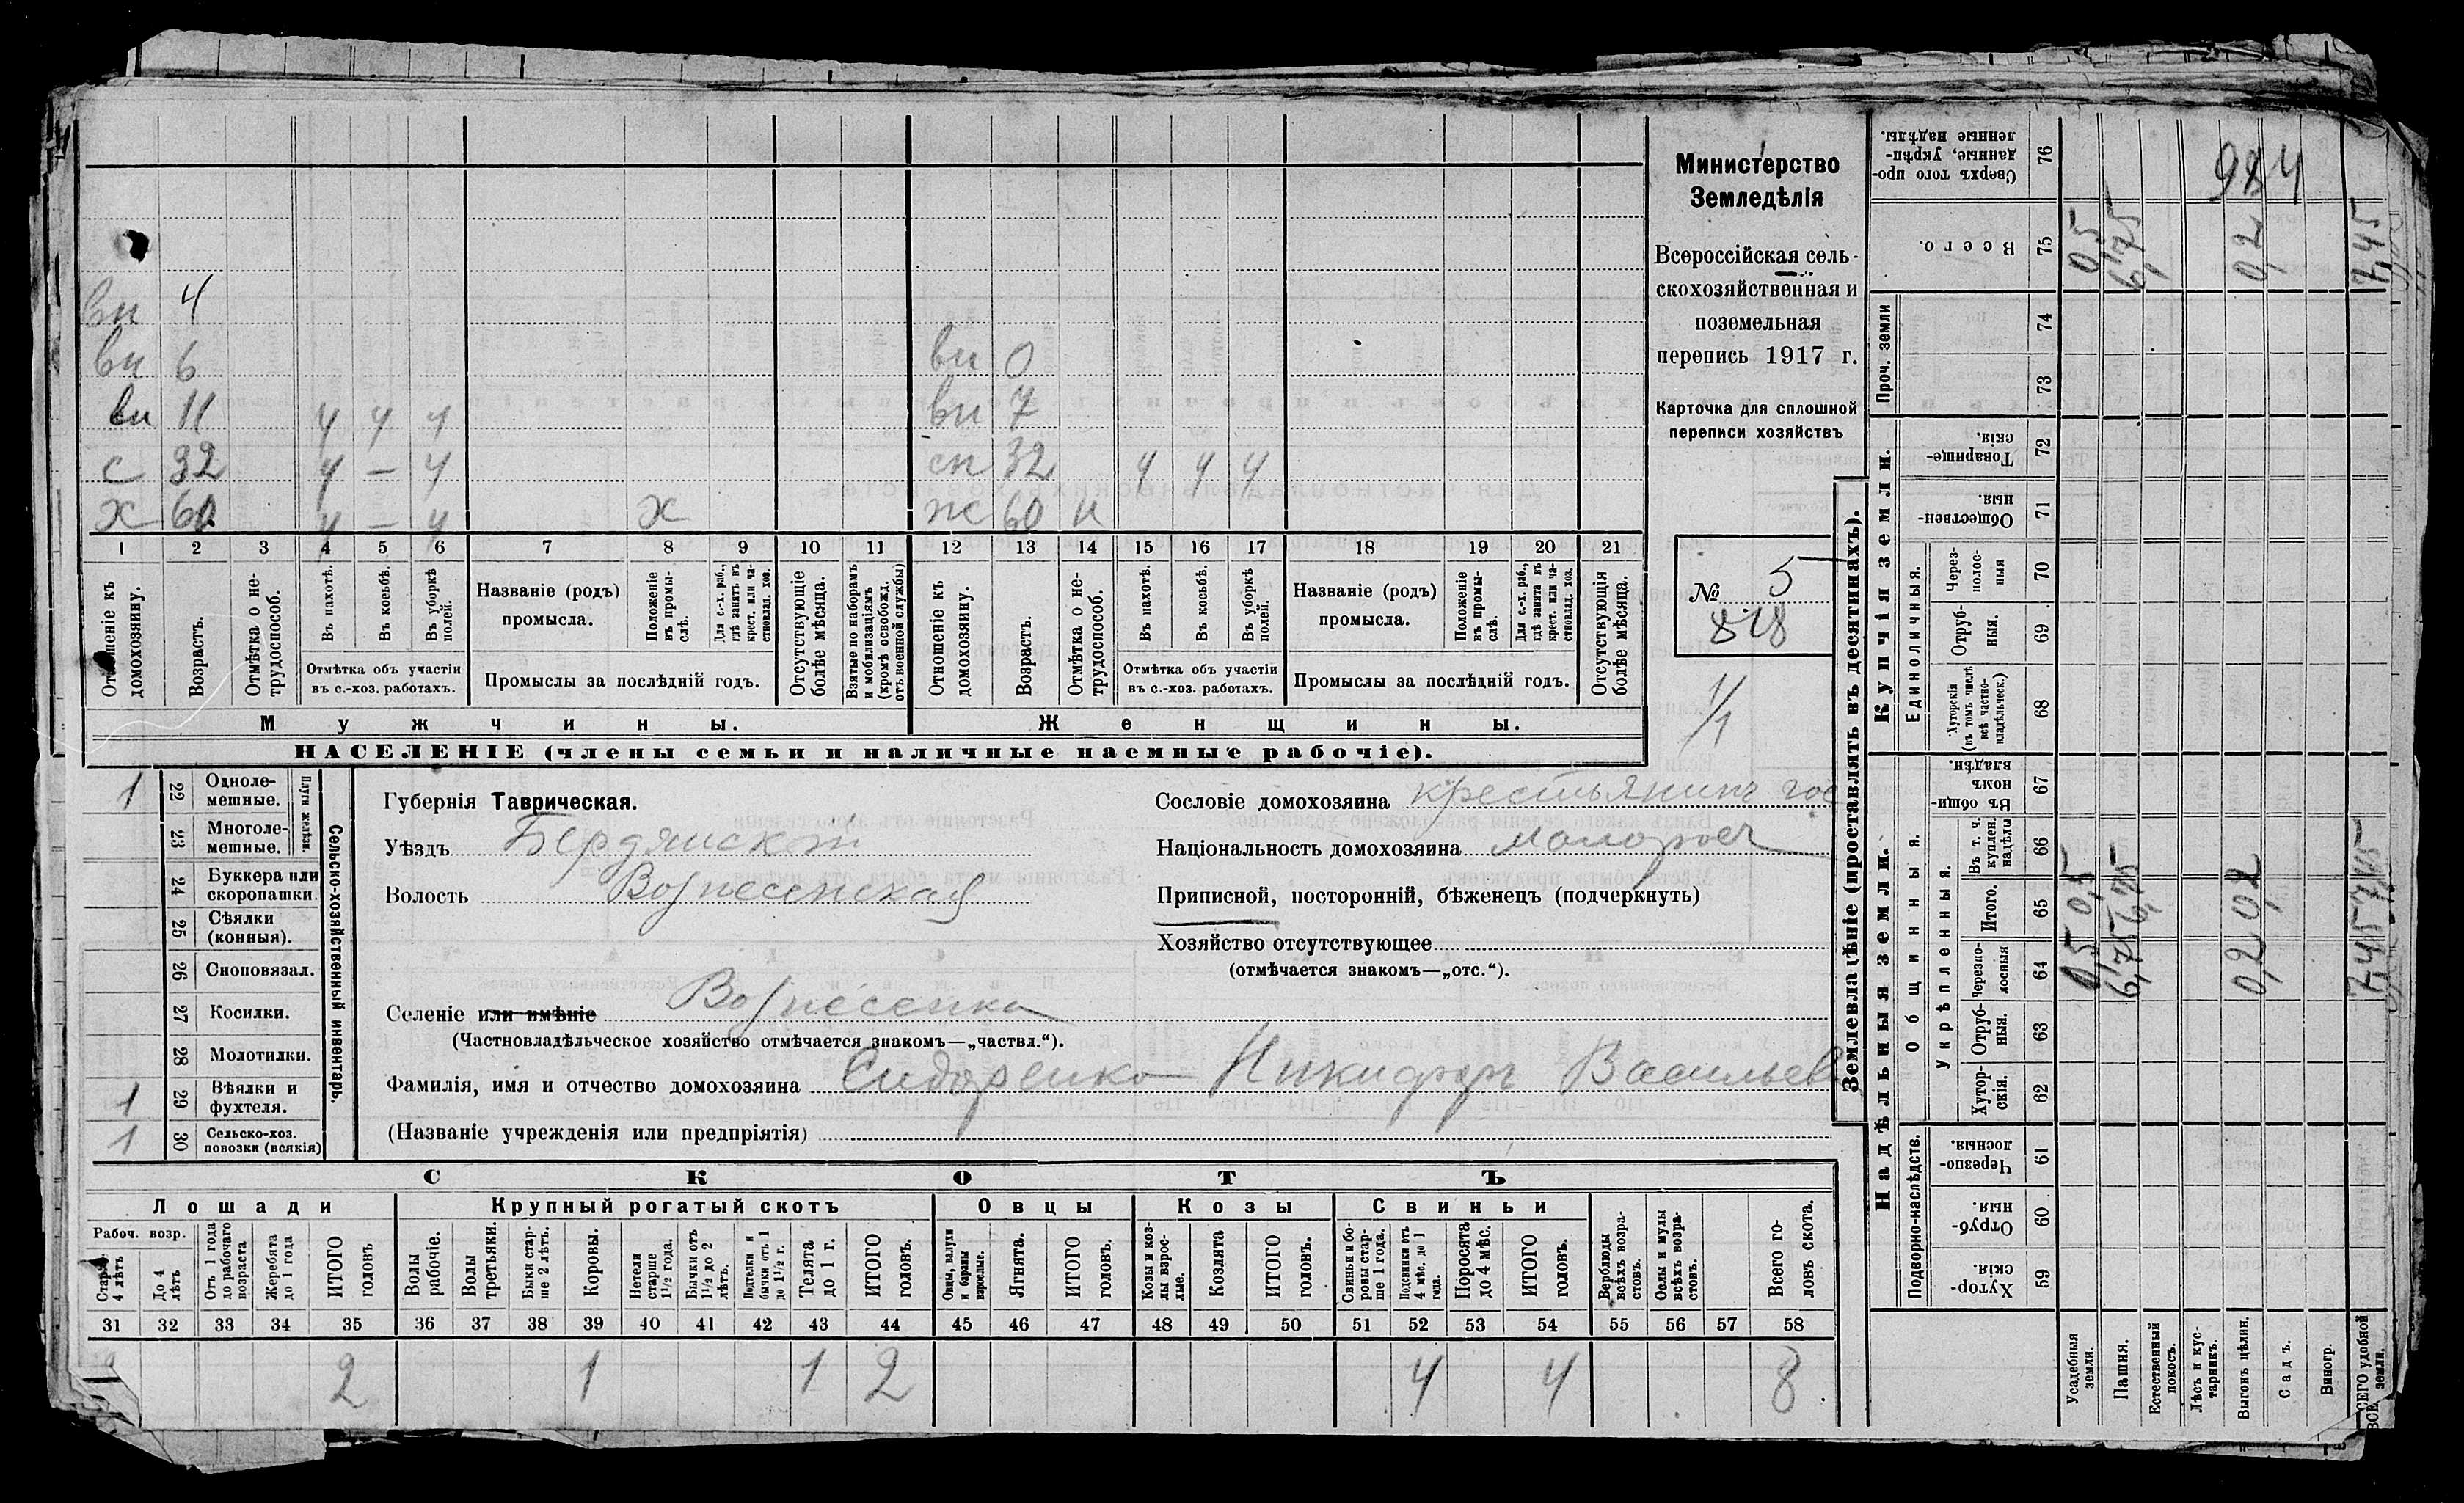 вн 4
вн 6 вн 0
вн 11 ч ч ч вн 7
с 32 ч — ч сн 32 ч ч ч
х 60 ч — ч х ж 60 н
1 2 3 4 5 6 7 8 9 10 11 12 13 14 15 16 17 18 19 20 21
Отношеніе къ домохозяину.
Возрастъ.
Отмѣтка о не-трудоспособ.
Въ пахотѣ.
Въ косьбѣ.
Въ уборкѣ полей.
Отмѣтка объ участіи
въ с.-хоз. работахъ.
Названіе (родъ)
промысла.
Положеніе въ промы-слѣ.
Для с.-х. раб., гдѣ занятъ въ крест. или ча-стновлад. хоз.
Промыслы за послѣдній годъ.
Отсутствующіе болѣе мѣсяца.
Взятые по наборамъ и мобилизаціямъ (кромѣ освобожд. отъ военной службы)
Отношеніе къ домохозяину.
Возрастъ.
Отмѣтка о не-трудоспособ.
Въ пахотѣ.
Въ косьбѣ.
Въ уборкѣ полей.
Отмѣтка объ участіи
въ с.-хоз. работахъ.
Названіе (родъ)
промысла.
Положеніе въ промы-слѣ.
Для с.-х. раб., гдѣ занята въ крест. или ча-стновлад. хоз.
Промыслы за послѣдній годъ.
Отсутствующія болѣе мѣсяца.
Мужчины. Женщины.
НАСЕЛЕНІЕ (члены семьи и наличные наемные рабочіе).
Министерство
Земледѣлія
Всероссійская сель-
скохозяйственная и
поземельная
перепись 1917 г.
Карточка для сплошной
переписи хозяйствъ
№ 5
818
1/1
Сельско-хозяйственный инвентарь.
Плуги желѣзн.
1 22 Одноле-мешные.
23 Многоле-мешные.
24 Буккера или скоропашки.
25 Сѣялки (конныя).
26 Сноповязал.
27 Косилки.
28 Молотилки.
1 29 Вѣялки и фухтеля.
1 30 Сельско-хоз. повозки (всякія)
Губернія Таврическая.
Уѣздъ Бердянскій
Волость Вознесенская
Селеніе или имѣніе Вознесенка
(Частновладѣльческое хозяйство отмѣчается знакомъ—„частвл.“).
Фамилія, имя и отчество домохозяина Сидоренко Никифоръ Васильев
(Названіе учрежденія или предпріятія)
Сословіе домохозяина крестьянинъ гос
Національность домохозяина малоросъ
Приписной, посторонній, бѣженецъ (подчеркнуть)
Хозяйство отсутствующее
(отмѣчается знакомъ—„отс.“).
СКОТЪ
Лошади Крупный рогатый скотъ Овцы Козы Свиньи
Рабоч. возр.
Старше 4 лѣтъ
До 4 лѣтъ
Отъ 1 года до рабочаго возраста
Жеребята до 1 года
ИТОГО головъ
Волы рабочіе.
Волы третьяки.
Быки стар-ше 2 лѣтъ.
Коровы.
Нетели старше 1½ года.
Бычки отъ 1½ до 2 лѣтъ.
Подтелки и бычки отъ 1 до 1½ г.
Телята до 1 г.
ИТОГО головъ.
Овцы, валухи и бараны взрослые.
Ягнята.
ИТОГО головъ.
Козы и коз-лы взрос-лые.
Козлята
ИТОГО головъ.
Свиньи и бо-ровы стар-ше 1 года.
Подсвинки отъ 4 мѣс. до 1 года.
Поросята до 4 мѣс.
ИТОГО головъ.
Верблюды всѣхъ возра-стовъ.
Ослы и мулы всѣхъ возра-стовъ.
Всего го-ловъ скота.
31 32 33 34 35 36 37 38 39 40 41 42 43 44 45 46 47 48 49 50 51 52 53 54 55 56 57 58
2 1 1 2 4 4 8
Землевладѣніе (проставлять въ десятинахъ).
Купчія земли.
Надѣльныя земли.
Сверхъ того про-данные, укрѣп-ленные надѣлы. 76
984
Всего. 75 0,5 6,75 0,2 7,45
Проч. земли 74 73
Товарище-скія. 72
Обществен-ныя. 71
Единоличныя.
Через-полос-ныя 70
Отруб-ныя. 69
Хуторскія (въ томъ числѣ всѣ частно-владѣльческ.) 68
Общинныя.
Въ общин-номъ владѣн. 67
Укрѣпленныя.
Въ т. ч. куплен. надѣлы 66
Итого. 65 0,5 6,75 0,2 7,45
Черезпо-лосныя 64 0,5 6,75 0,2 7,45
Отруб-ныя. 63
Хутор-скія. 62
Подворно-наслѣдств.
Черезпо-лосныя. 61
Отруб-ныя. 60
Хутор-скія. 59
Усадебныя земли.
Пашня.
Естественный покосъ.
Лѣсъ и кус-тарникъ.
Выгонъ цѣлин.
Садъ.
Виногр.
ВСЕГО удобной земли.